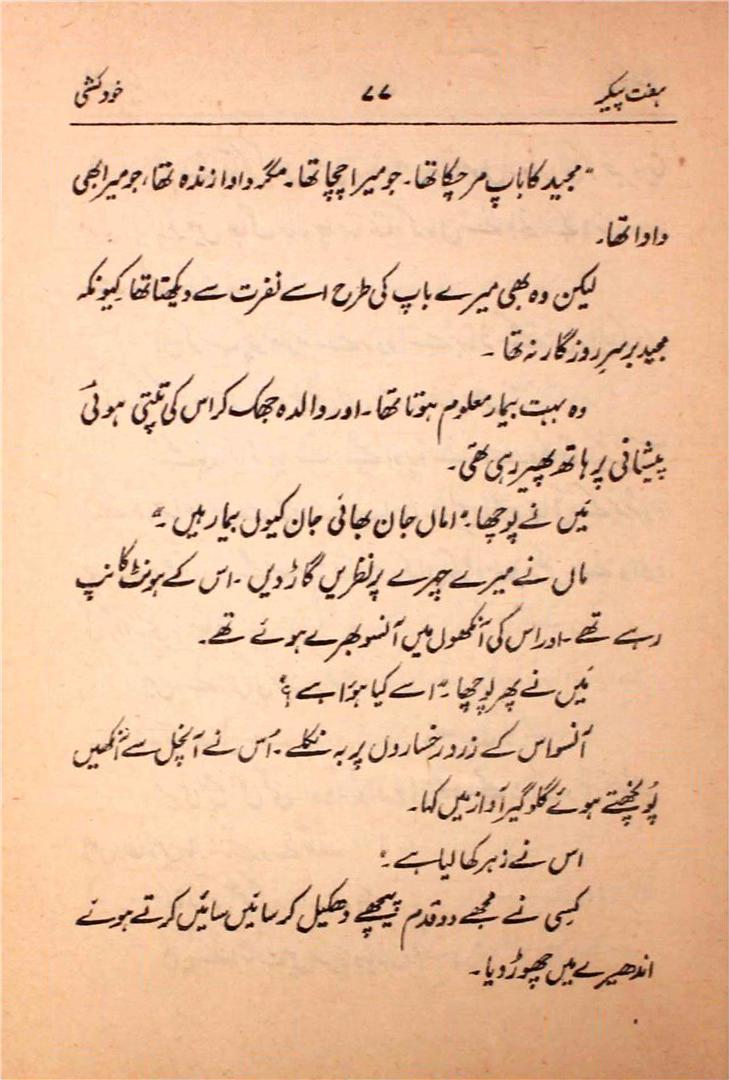 ہفت پیکر ۷۷ خودکشی
"مجید کا باپ مر چکا تھا۔ جو میرا چچا تھا۔ مگر دادا زندہ تھا، جو میرا بھی
دادا تھا۔
لیکن وہ بھی میرے باپ کی طرح اسے نفرت سے دیکھتا تھا کیونکہ
مجید برسرِ روزگار نہ تھا ۔
وہ بہت بیمار معلوم ہوتا تھا۔ اور والدہ جھک کر اس کی تپتی ہوئی
پیشانی پر ہاتھ پھیر رہی تھی۔
مَیں نے پوچھا۔ "اماں جان بھائی جان کیوں بیمار ہیں ۔"
ماں نے میرے چہرے پر نظریں گاڑ دیں ۔ اس کے ہونٹ کانپ
رہے تھے ۔ اور اس کی آنکھوں میں آنسو بھرے ہوئے تھے۔
مَیں نے پھر پوچھا۔ "اسے کیا ہوا ہے ؟"
آنسو اس کے زرد رخساروں پر بہ نکلے ۔ اُس نے آنچل سے آنکھیں
پُونچھتے ہوئے گلوگیر آواز میں کہا۔
اس نے زہر کھا لیا ہے ۔"
کسِی نے مجھے دو قدم پیچھے دھکیل کر سائیں سائیں کرتے ہوئے
اندھیرے میں چھوڑ دیا ۔